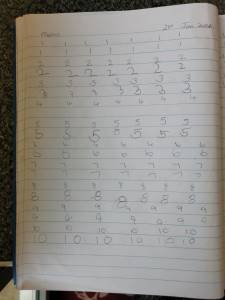 Maths
1 1 1 1 1 1 1
1 1 1 1 1 1 1
2 2 2 2 2 2 2
2 2 2 2 2 2 2
3 3 3 3 3 3 3
3 3 3 3 3 3 3
4 4 4 4 4 4 4
5 5 5 5 5 5
5 5 5 5 5 5
6 6 6 6 6 6 6
6 6 6 6 6 6 6
7 7 7 7 7 7 7
7 7 7 7 7 7 7
8 8 8 8 8 8
8 8 8 8 8 8 8
9 9 9 9 9 9 9
9 9 9 9 9 9
10 10 10 10 10 10
10 10 10 10 10 10